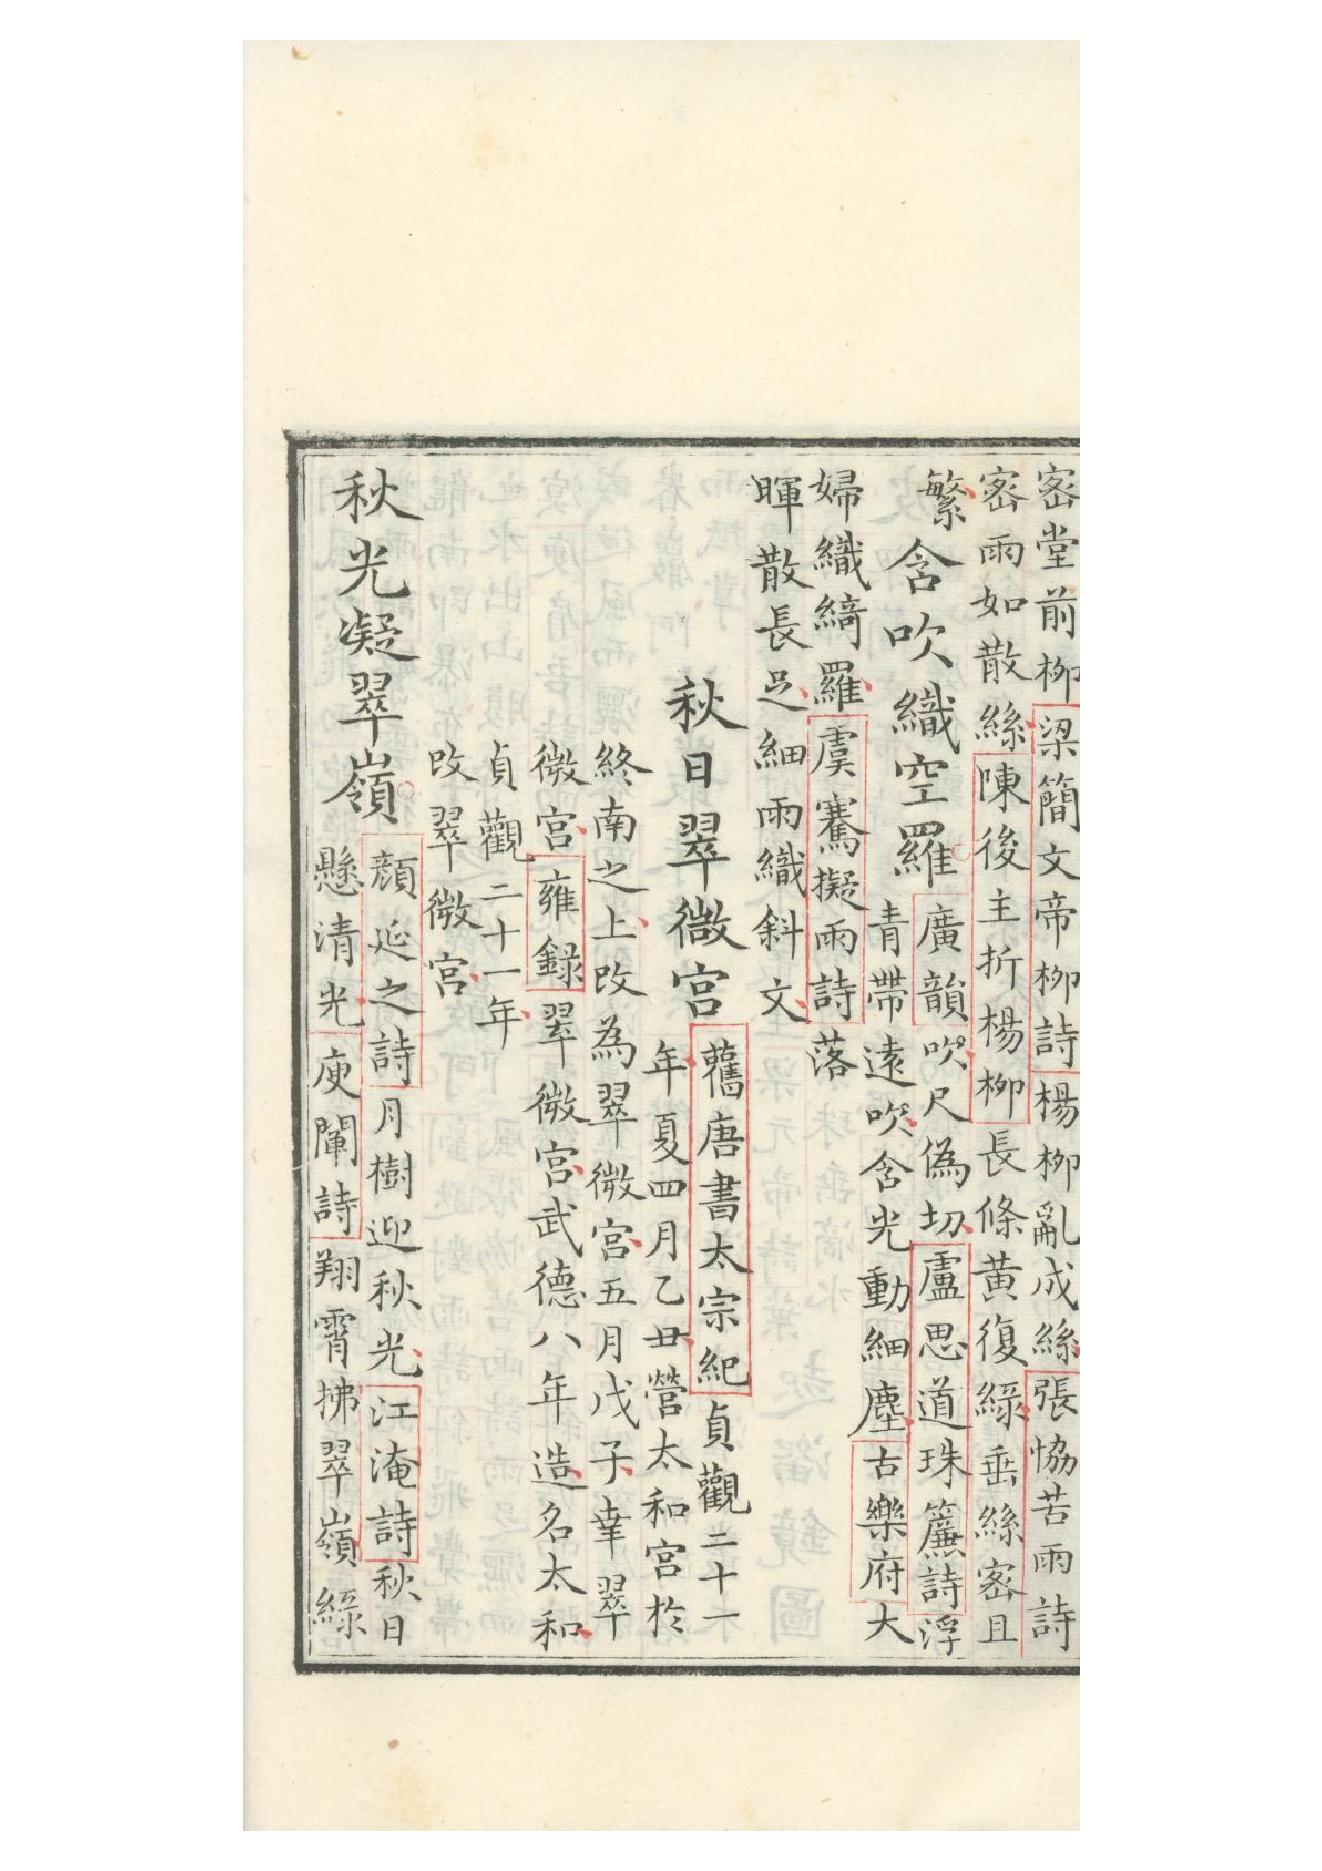 密堂前柳梁簡文帝柳詩楊柳亂成絲張協苦雨詩
密雨如散絲陳後主折楊柳長條黃復綠垂絲密且
繁
含吹織空羅
廣韻吹尺偽切盧思道珠簾詩浮
青帶遠吹含光動細塵古樂府大
婦織綺羅虞騫擬雨詩落
暉散長足細雨織斜文
秋日翠微宮
舊唐書太宗紀貞觀二十一
年夏四月乙丑營太和宮於
終南之上改為翠微宮五月戊子幸翠
微宮雍錄翠微宮武德八年造名太和
貞觀二十一年
改翠微宮
秋光凝翠嶺
顏延之詩月樹迎秋光江淹詩秋日
懸清光庾闡詩翔霄拂翠嶺綠